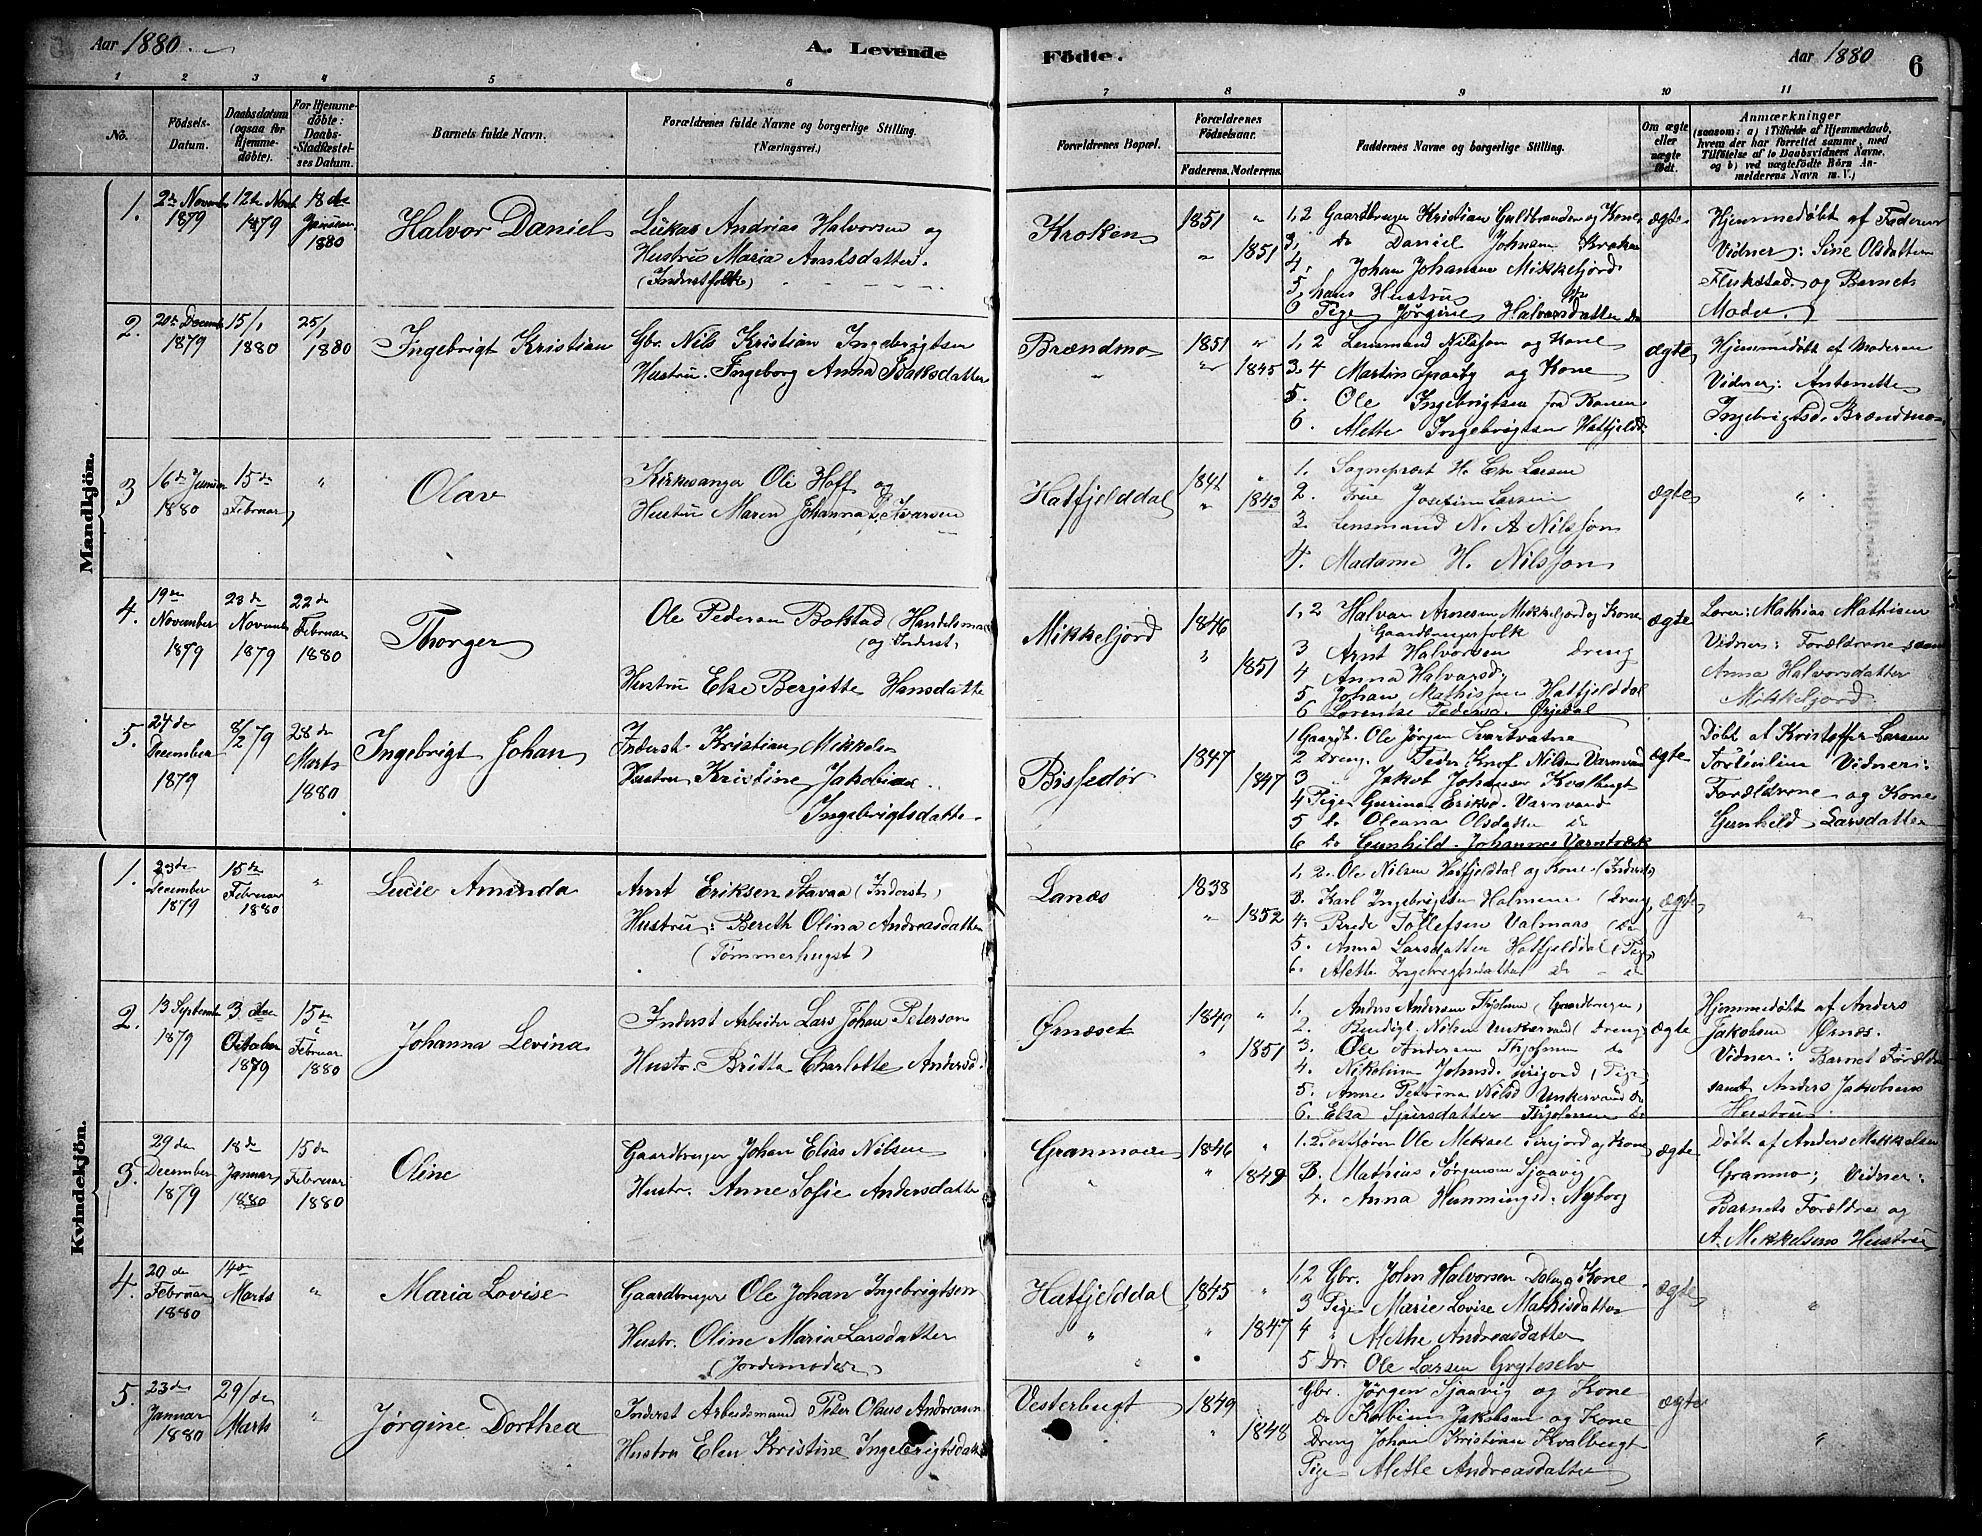 Aar 1880.
A. Levende
Födte.
Aar 1880
6
1 2 3 4 5 6
7 8 9 10 11
No.
Födsels-Datum.
Daabsdatum (ogsaa for Hjemmedöbte).
For Hjemmedöbte: Daabs-Stadfæstelses Datum.
Barnets fulde Navn.
Forældrenes fulde Navne og borgerlige Stilling.
(Næringsvei.)
Forældrenes Bopæl.
Forældrenes Födselsaar.
Faderens. Moderens.
Faddernes Navne og borgerlige Stilling.
Om ægte eller uægte födt.
Anmærkninger
(saasom: a) i Tilfælde af Hjemmedaab,
hvem der har forrettet samme, med
Tilföielse af to Daabsvidners Navne,
og b) ved uægtefödte Börn Anmelderens Navn m. V.)
Mandkjön.
1.
1879
1879
18 de
1880
Halvor Daniel
Lukas Andrias Halvorsen og
Hustru Maria
(Inderstfolk)
Kroken
1851 "
" 1851
1, 2 Gaardbruger Kristian Guldbrandsen og Kone
3, do Daniel Johnsen Kroken
4. Johan Johansen Mikkeljord
5, hans Hustru
6 Pige Jørgine Halvorsdatter do
ægte
Hjemmedøbt af Faderen
Vidner: Sine Olsdatter
og Barnets
Moder.
2.
20de Decembr
1879
15/1
1880
25/1
1880
Ingebrigt Kristian
Gbr. Nils Kristian Ingebrigtsen
Hustru. Ingeborg Anna Isaksdatter
Brændmo
"
1851 "
" 1845
1, 2 Lensmand Nilsson og Kone
3. 4 Martin Sparby og Kone
5. Ole Ingebrigtsen fra Ranen
6. Alette Ingebrigtsen Hatfjeldd.
ægte
Hjemmedøbt af Moderen
Vidner: Antonette
Ingebrigtsd. Brændmo
3
16 de
1880
15 de
Februar
"
Olav
Kirkesanger Ole Hoff og
Hustru Maren Johanna
Hatfjelddal
1841 "
" 1843
1. Sogneprest H. Larsen
2. Frue Josefine Larsen
3. Lensmand N. A Nilsson
4. Madame H. Nilsson
ægte
"
4.
19de
November
1879
23 de
Novembr
1879
22 de
Februar
1880
Thorger
Ole Pedersen Bolstad (Handelsmand
og Inderst)
Hustru Else Bergitte Hansdatter
Mikkeljord
1846
" 1851
1, 2 Halvar Arnesen Mikkeljord og Kone
Gaardbrugerfolk
3 Arnt Halvorsen Dreng
4 Anna Halvorsd.
5 Johan Mathissen Hatfjelddal
6 Lorentse Pedersd.
ægte
Lærer: Mathias Mathisen
Vidner: Forældrene samt
Anna Halvorsdatter
Mikkeljord
5.
24 de
December
1879
8/2 79
28 de
Marts
1880
Ingebrigt Johan
Inderst. Kristian Mikkelsen
Hustru Kristine Jakobine
Ingebrigtsdatter
Bisfedør
1847
1847
1 Gaardb. Ole Jørgen Svartvatne
2 Dreng. Peder Knof Nilsen Varnvand
3 " Jakob Johansen Kvalbugt
4 Pige Gurina Eriksd. Varnvand
5 do Oleana Olsdatter do
6 do Gunhild Johannes
ægte
Døbt af Kristoffer Larsen
Vidner:
Forældrene og Kone
Gunhild Larsdatter
Kvindekjön.
1.
23 de
December
1879
15 de
Februar
1880
"
Lucie Aminda
Arnt Eriksen Stavaa (Inderst)
Hustru: Bereth Olina Andreasdatter
(Tømmerhugst)
Lanæs
1838
" 1852
1, 2. Ole Nilsen Hatfjelddal og Kone (Inderst)
3. Karl Ingebrigtsen Halmene (Dreng)
4. Brede Tollefsen Valmaas (do
5. Anna Larsdatter Hatfjelddal (Pige)
6. Alette Ingebrigtsdatter do - do
ægte
"
2.
13 September
1879
3 die
October
1879
15 de
Februar
1880
Johanna Levina
Inderst Arbeider Lars Johan Peterson
Hustr. Britta Charlotte Andersd.
Ørnæset
1849 "
" 1851
1. Anders Andersen (Gaardbruger)
2. Nilsen Unkervand (Dreng)
3. Ole Andersen do
4. Nikoline Johnsd. (Pige)
5. Anne Petrina Nilsd Unkervand do
6. Elsa Sjursdatter do
ægte
Hjemmedøbt af Anders
Jakobsen Ørnæs.
Vidner: Barnets Forældre
samt Anders Jakobsens
Hustru.
3.
29 de
December
1879
18 de
Januar
1880
15 de
Februar
1880
Oline
Gaardbruger Johan Elias Nilsen
Hustr. Anne Sofie Andersdatter
Granmoen
"
1846 "
" 1849
1. 2 Ole Mikael og Kone
3. Mathias Jørgensen Sjaavig
4. Anna Hemmingsd. Nyborg
ægte
Døbt af Anders Mikkelsen
Granmo; Vidner:
Barnets Forældre og
A. Mikkelsens Hustru
4.
20 de
Februar
1880
14de
Marts
"
Maria Lovise
Gaardbruger Ole Johan Ingebrigtsen
Hustr. Oline Maria Larsdatter
(Jordemoder)
Hatfjelddal
"
1845 "
" 1847
1, 2 Gbr. John Halvorsen Dalen og Kone
3 Pige Marie Lovise Mathisdatter
4 " Alethe Andreasdatter
5 Dr. Ole Larsen Gryteselv
ægte
"
5.
23de
Januar
1880
29/de
Marts
"
Jørgine Dorthea
Inderst Arbeidsmand Peter Olaus Andreasen
Hustru Elen Kristine Ingebrigtsdatter
Vesterbugt
"
1849
" 1848
Gbr. Jørgen Sjaavig og Kone
do Kolbin Jakobsen og Kone
Dreng Johan Kristian Kvalbugt
Pige Alette Andreasdatter
ægte
"